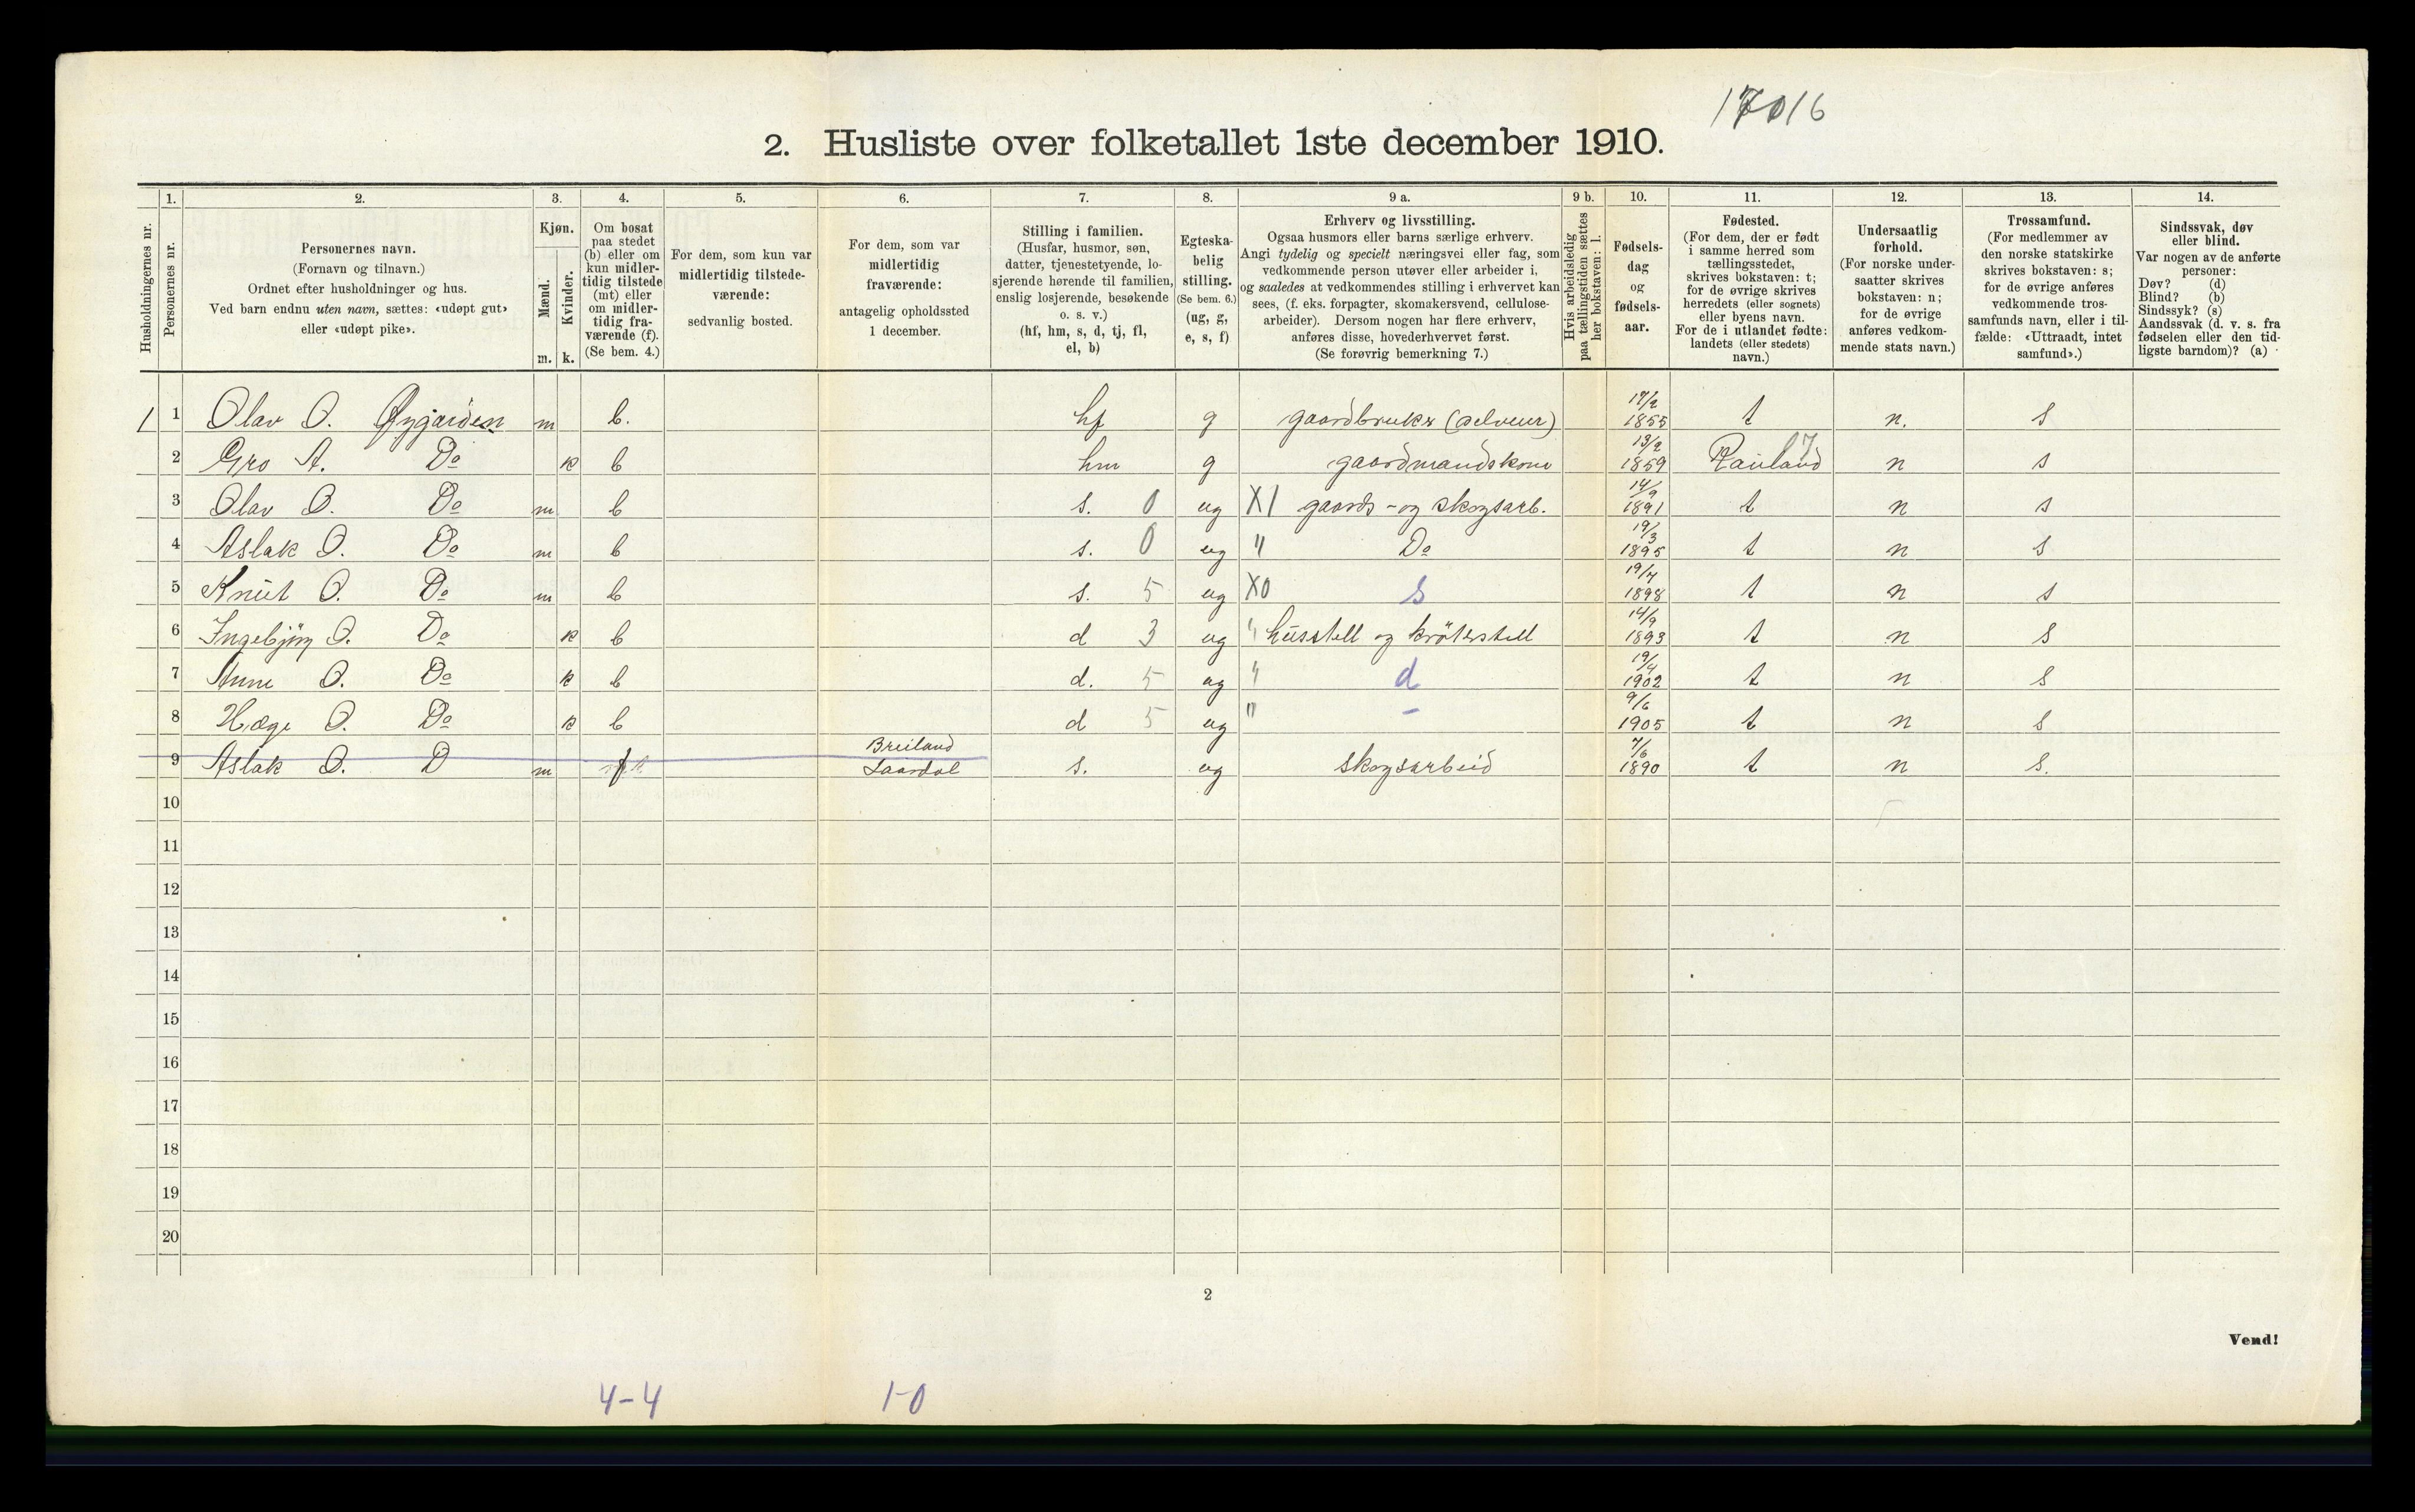 17016
2. Husliste over folketallet 1ste december 1910.
1. 2. 3. 4. 5. 6. 7. 8. 9 a. 9 b. 10. 11. 12. 13. 14.
Husholdningernes nr.
Personernes nr.
Personernes navn.
(Fornavn og tilnavn.)
Ordnet efter husholdninger og hus.
Ved barn endnu uten navn, sættes: «udøpt gut»
eller «udøpt pike».
Kjøn.
Mænd.
Kvinder.
m. k.
Om bosat
paa stedet
(b) eller om
kun midler-
tidig tilstede
(mt) eller
om midler-
tidig fra-
værende (f).
(Se bem. 4.)
For dem, som kun var
midlertidig tilstede-
værende:
sedvanlig bosted.
For dem, som var
midlertidig
fraværende:
antagelig opholdssted
1 december.
Stilling i familien.
(Husfar, husmor, søn,
datter, tjenestetyende, lo-
sjerende hørende til familien,
enslig losjerende, besøkende
o. s. v.)
(hf, hm, s, d, tj, fl,
el, b)
Egteska-
belig
stilling.
(Se bem. 6.)
(ug, g,
e, s, f)
Erhverv og livsstilling.
Ogsaa husmors eller barns særlige erhverv.
Angi tydelig og specielt næringsvei eller fag, som
vedkommende person utøver eller arbeider i,
og saaledes at vedkommendes stilling i erhvervet kan
sees, (f. eks. forpagter, skomakersvend, cellulose-
arbeider). Dersom nogen har flere erhverv,
anføres disse, hovederhvervet først.
(Se forøvrig bemerkning 7.)
Hvis arbeidsledig
paa tællingstiden sættes
her bokstaven: l.
Fødsels-
dag
og
fødsels-
aar.
Fødested.
(For dem, der er født
i samme herred som
tællingsstedet,
skrives bokstaven: t;
for de øvrige skrives
herredets (eller sognets)
eller byens navn.
For de i utlandet fødte:
landets (eller stedets)
navn.)
Undersaatlig
forhold.
(For norske under-
saatter skrives
bokstaven: n;
for de øvrige
anføres vedkom-
mende stats navn.)
Trossamfund.
(For medlemmer av
den norske statskirke
skrives bokstaven: s;
for de øvrige anføres
vedkommende tros-
samfunds navn, eller i til-
fælde: «Uttraadt, intet
samfund».)
Sindssvak, døv
eller blind.
Var nogen av de anførte
personer:
Døv? (d)
Blind? (b)
Sindssyk? (s)
Aandssvak (d. v. s. fra
fødselen eller den tid-
ligste barndom)? (a)
1 1 Olav O. Øygarden m b. hf g gaardbruker (selveier) 17/2 1855 t n. s
2 Gro A. Do k b hm g gaardmandskone 13/2 1859 Rauland 7 n s
3 Olav O. Do m b s. 0 ug X1 gaards- og skogsarb. 14/9 1891 t n s
4 Aslak O. Do m b s. 0 ug " Do 19/3 1895 t n s
5 Knut O. Do m b s. 5 ug X0 s 19/7 1898 t n s
6 Ingebjørg O. Do k b d 3 ug " husstell og krøterstell 14/9 1893 t n s
7 Anne O. Do k b d. 5 ug " d 19/4 1902 t n s
8 Hæge O. Do k b d 5 ug " – 9/6 1905 t n s
9 Aslak O. D m f Breiland Laardal s. ug skogsarbeid 7/6 1890 t n s.
10
11
12
13
14
15
16
17
18
19
20
2
Vend!
4-4 1-0